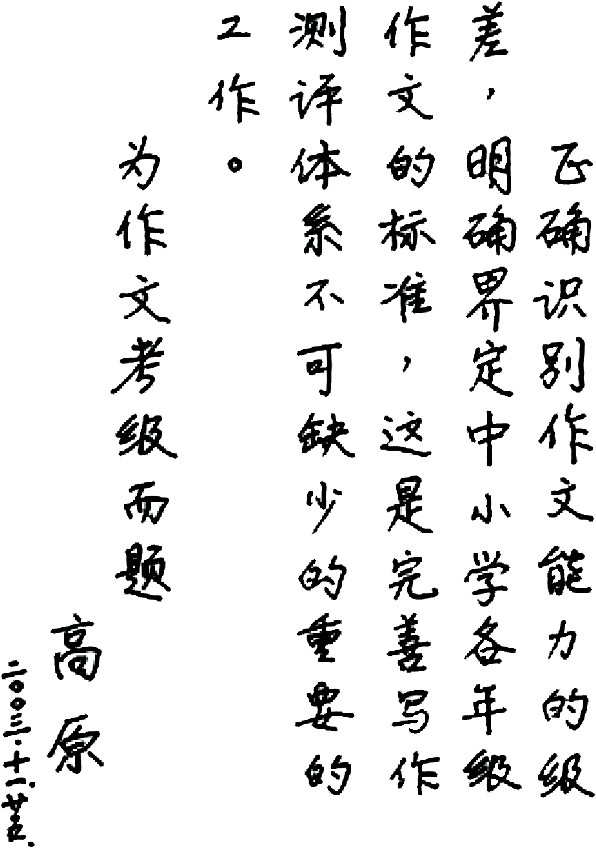 正确识别作文能力的级
差，明确界定中小学各年级
作文的标准，这是完善写作
测评体系不可缺少的重要的
工作。
为作文考级而题
高原
二〇〇三·十一·廿五.